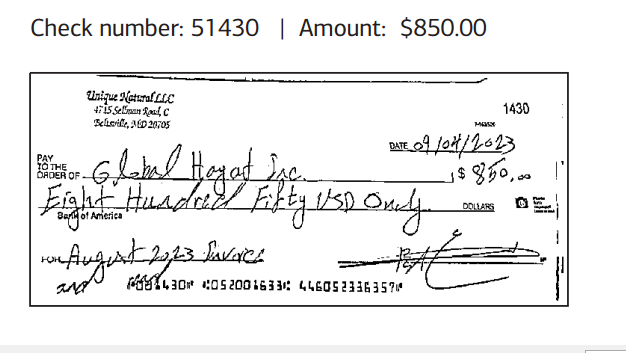 Check number: 51430 | Amount: $850.00
Unique Natural LLC
4715 Sellman Road, C
Beltsville, MD 20705
1430
DATE 09/04/2023
PAY TO THE ORDER OF Global Hayat Inc. $ 850.00
Eight Hundred Fifty USD Only DOLLARS
Bank of America
FOR August 2023 Invoice
and
⑈001430⑈ ⑆052001633⑆ 446052336357⑈